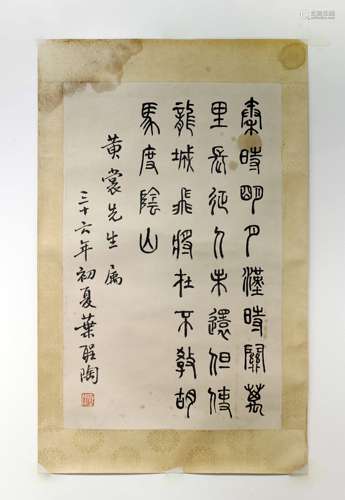 秦時明月漢時關萬
里長征人未還但使
龍城飛將在不敎胡
馬度陰山
黃裳先生屬
三十六年初夏葉聖陶